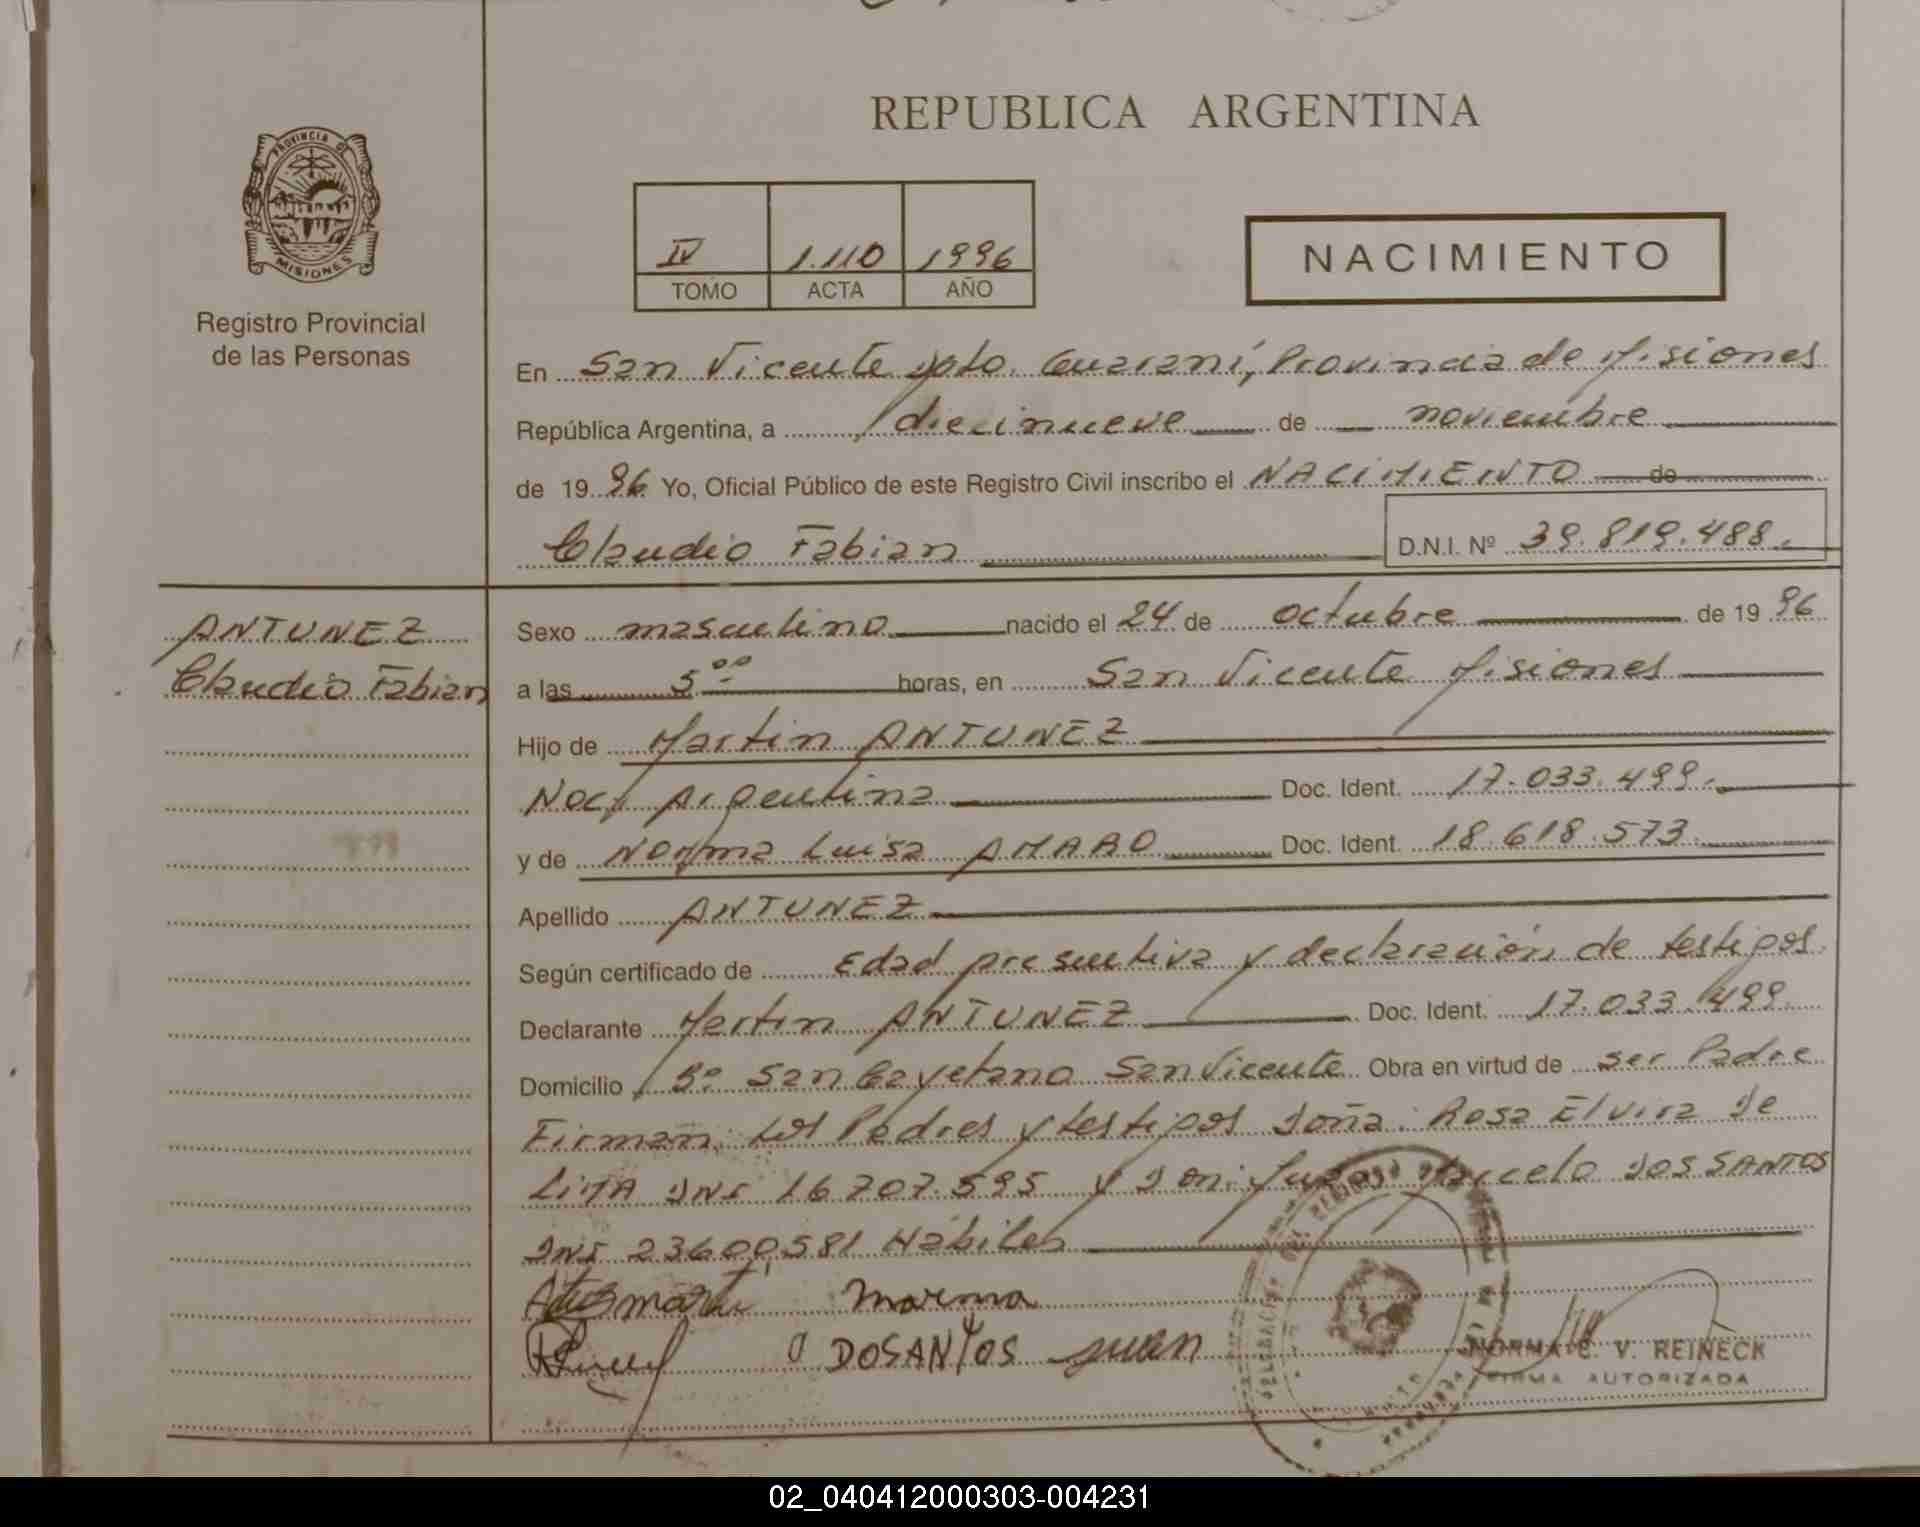 REPUBLICA ARGENTINA
PROVINCIA DE
MISIONES
Registro Provincial
de las Personas
IV 1.110 1996
TOMO ACTA AÑO
NACIMIENTO
En San Vicente Dpto. Guaraní, Provincia de Misiones
República Argentina, a diecinueve de noviembre
de 1996 Yo, Oficial Público de este Registro Civil inscribo el NACIMIENTO de
Claudio Fabian D.N.I. Nº 39.819.488.
ANTUNEZ
Claudio Fabian
Sexo masculino nacido el 24 de octubre de 1996
a las 5°° horas, en San Vicente Misiones
Hijo de Martin ANTUNEZ
Nac. Argentina Doc. Ident. 17.033.499.
y de Norma Luisa AMARO Doc. Ident. 18.618.573.
Apellido ANTUNEZ
Según certificado de Edad presuntiva y declaración de testigos.
Declarante Martin ANTUNEZ Doc. Ident. 17.033.499.
Domicilio Bº San Cayetano San Vicente Obra en virtud de ser Padre
Firman: los Padres y testigos Doña: Rosa Elvira De
LIMA DNI 16.707.595 y Don: Juan Marcelo DOS SANTOS
DNI 23600581 Hábiles
DOSANTOS juan
NORMA C. V. REINECK
FIRMA AUTORIZADA
02_040412000303-004231